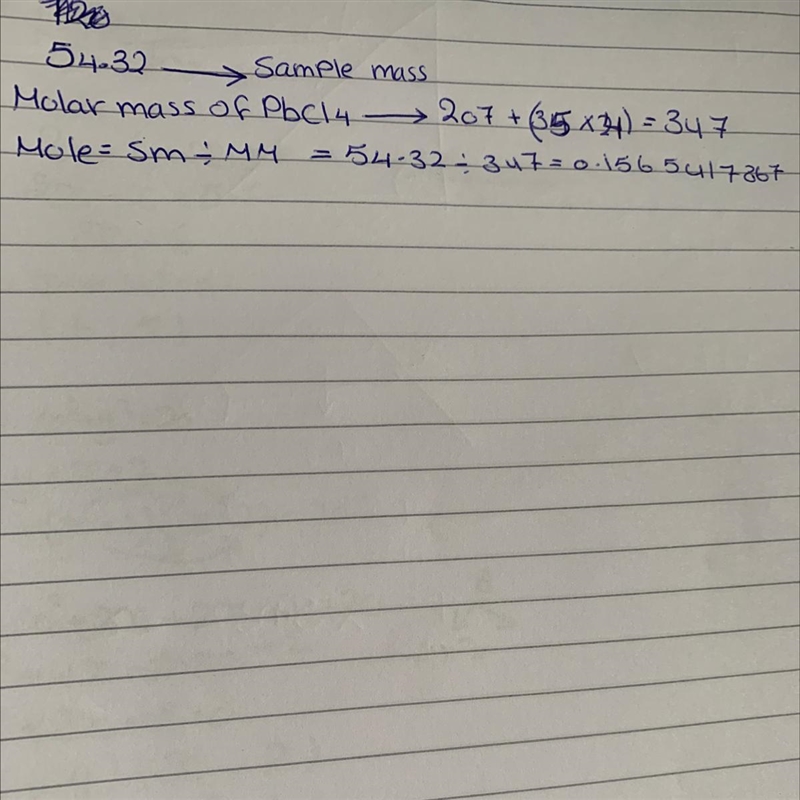 54.32 ⟶ Sample mass
Molar mass of PbCl4 ⟶ 207 + (35 × 4) = 347
Mole = Sm ÷ MM = 54.32 ÷ 347 = 0.1565417867